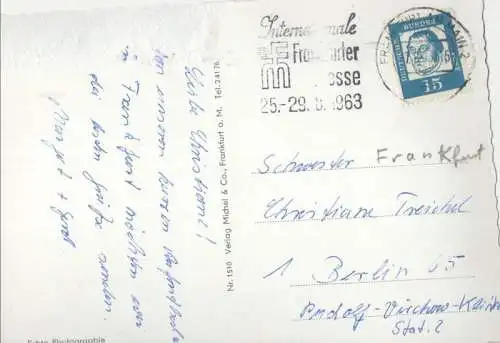 Internationale
Frankfurter
Messe
25.-29. 8. 1963
FRANKFURT
DEUTSCHE BUNDESPOST
15
Liebe Christiane!
Von unserem kurzen Aufenthalt
in Frankfurt möchten wir
die besten Grüße senden.
Margot + Gerd
Nr. 1510 Verlag Michel & Co., Frankfurt a. M. Tel. 24176
Echte Photographie
Schwester Frankfurt
Christiane Treichel
1 Berlin 65
Rudolf-Virchow-Klinik
Stat. 2